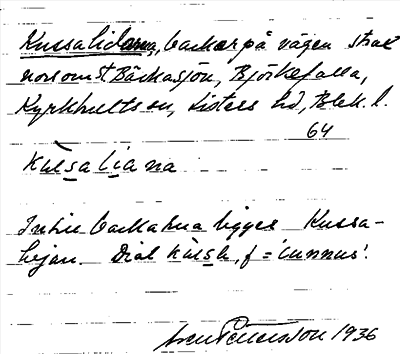 Kussalidarna, backar på vägen strax
norr om St. Bäckasjön, Björkefalla,
Kyrkhults sn, Listers hd, Blek. l.
64
kùsaliana
Intill backarna ligger Kussa-
hejan. Dial kùs, f = 'cunnus'.
Sven Petersson 1936